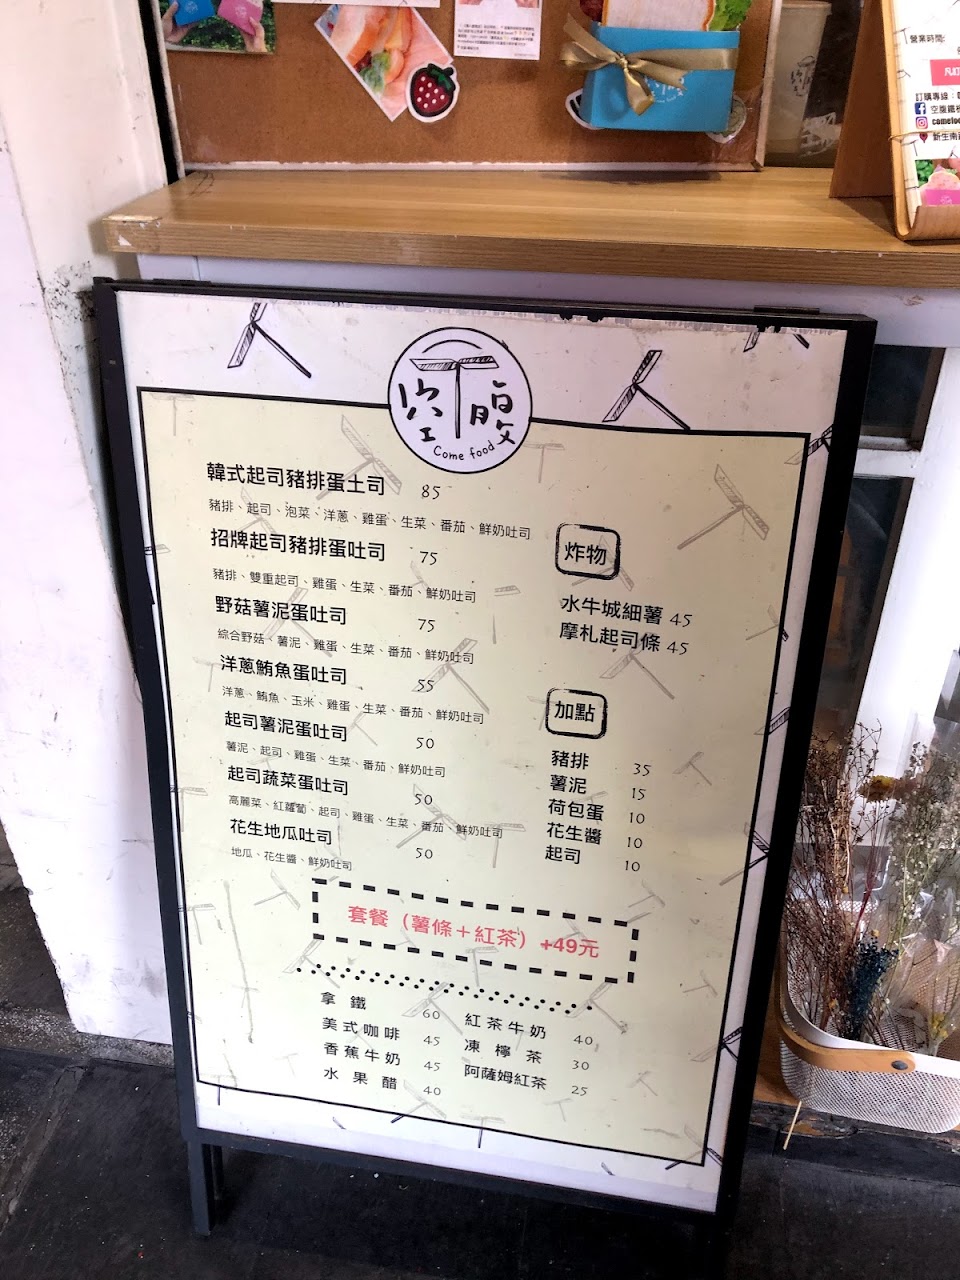 營業時間:
訂購專線:
空腹
Come food
韓式起司豬排蛋土司 85
豬排、起司、泡菜、洋蔥、雞蛋、生菜、番茄、鮮奶吐司
招牌起司豬排蛋吐司 75
豬排、雙重起司、雞蛋、生菜、番茄、鮮奶吐司
野菇薯泥蛋吐司 75
綜合野菇、薯泥、雞蛋、生菜、番茄、鮮奶吐司
洋蔥鮪魚蛋吐司 55
洋蔥、鮪魚、玉米、雞蛋、生菜、番茄、鮮奶吐司
起司薯泥蛋吐司 50
薯泥、起司、雞蛋、生菜、番茄、鮮奶吐司
起司蔬菜蛋吐司 50
高麗菜、紅蘿蔔、起司、雞蛋、生菜、番茄、鮮奶吐司
花生地瓜吐司 50
地瓜、花生醬、鮮奶吐司
炸物
水牛城細薯 45
摩札起司條 45
加點
豬排 35
薯泥 15
荷包蛋 10
花生醬 10
起司 10
套餐（薯條＋紅茶）+49元
拿鐵 60
美式咖啡 45
香蕉牛奶 45
水果醋 40
紅茶牛奶 40
凍檸茶 30
阿薩姆紅茶 25